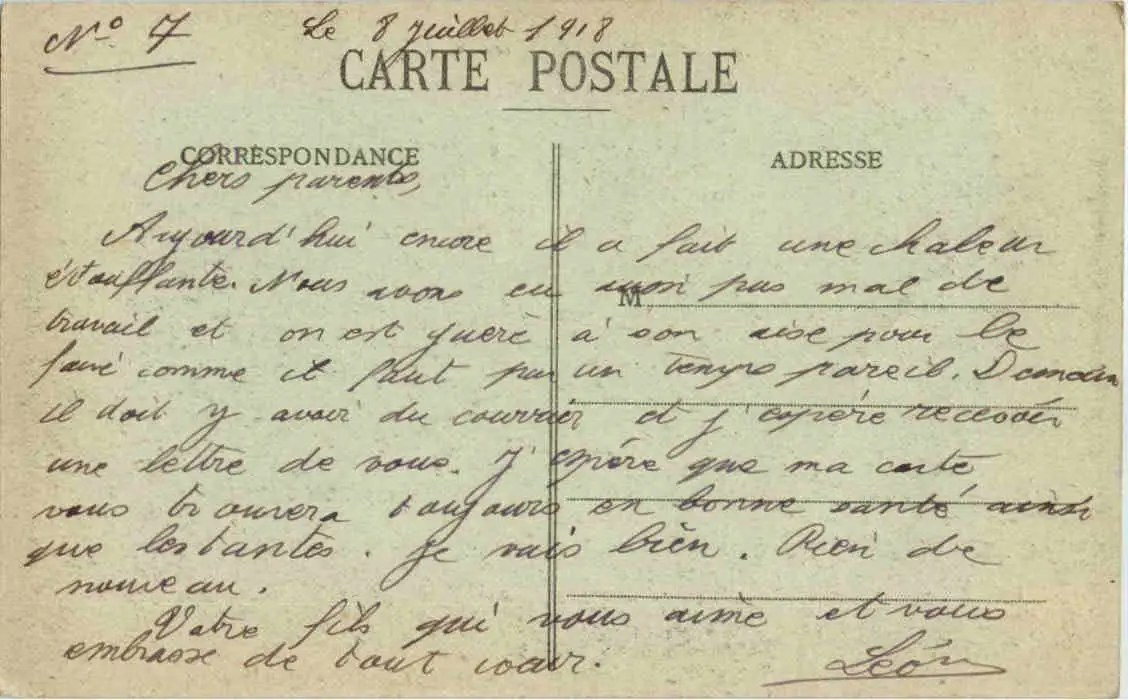 N° 7 Le 8 juillet 1918
CARTE POSTALE
CORRESPONDANCE ADRESSE
Chers parents,
Aujourd'hui encore il a fait une chaleur
étouffante. Nous avons eu pas mal de
M
travail et on est guère à son aise pour le
faire comme il faut par un temps pareil. Demain
il doit y avoir du courrier et j'espère recevoir
une lettre de vous. J'espère que ma carte
vous trouvera toujours en bonne santé ainsi
que les tantes. Je vais bien. Rien de
nouveau.
Votre fils qui vous aime et vous
embrasse de tout coeur.
Léon